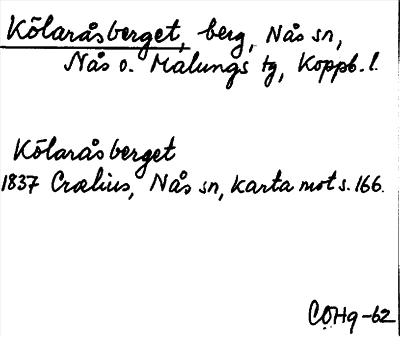 Kölaråsberget, berg, Nås sn,
Nås o. Malungs tg, Koppb. l.
Kölaråsberget
1837 Crælius, Nås sn, karta mot s. 166.
COHg-62